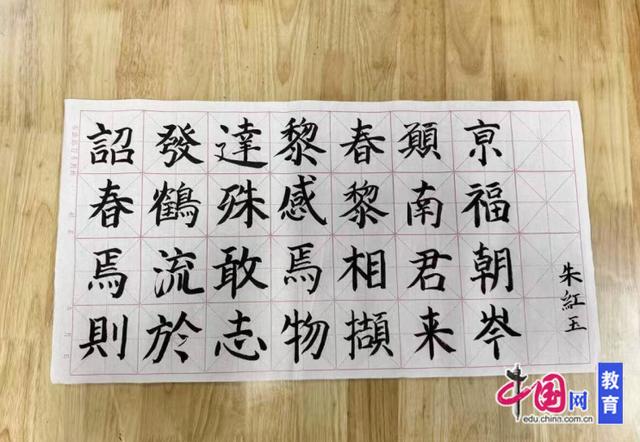 詔發達黎春願亰
春鶴殊感黎南福
焉流敢焉相君朝
則於志物擷来岑
朱紅玉
中国网
edu.china.com.cn
教育